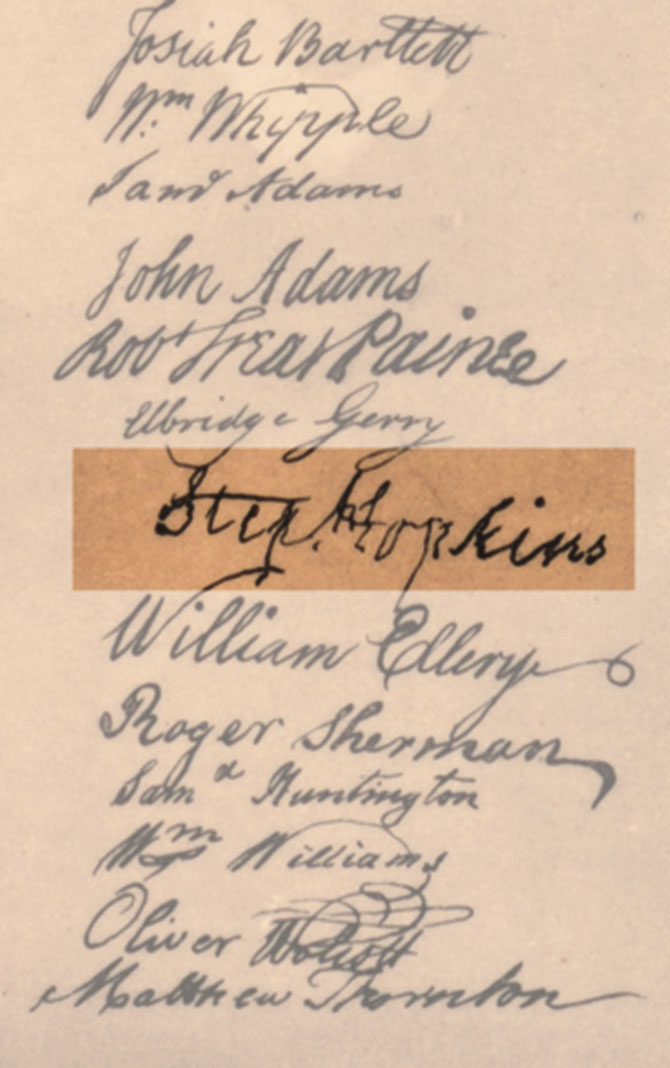 Josiah Bartlett
Wm Whipple
Saml Adams
John Adams
Robt Treat Paine
Elbridge Gerry
Step. Hopkins
William Ellery
Roger Sherman
Saml Huntington
Wm Williams
Oliver Wolcott
Matthew Thornton